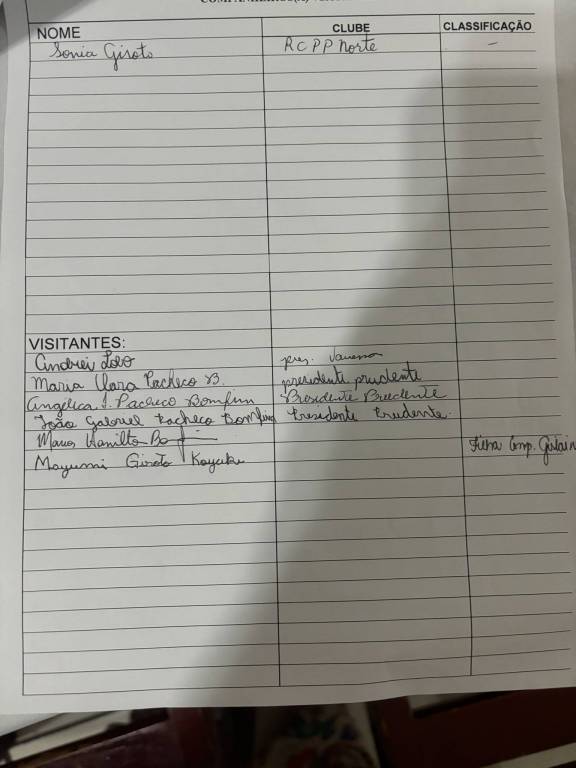 NOME CLUBE CLASSIFICAÇÃO
Sonia Giroto RCPP norte -
VISITANTES:
Andrei Lobo pres.
Maria Clara Pacheco B. presidente prudente
Angélica Pacheco Bomfim Presidente Prudente
João Gabriel Pacheco Bomfim Presidente Prudente.
Hamilto
Mayumi Giroto Koyake Comp.